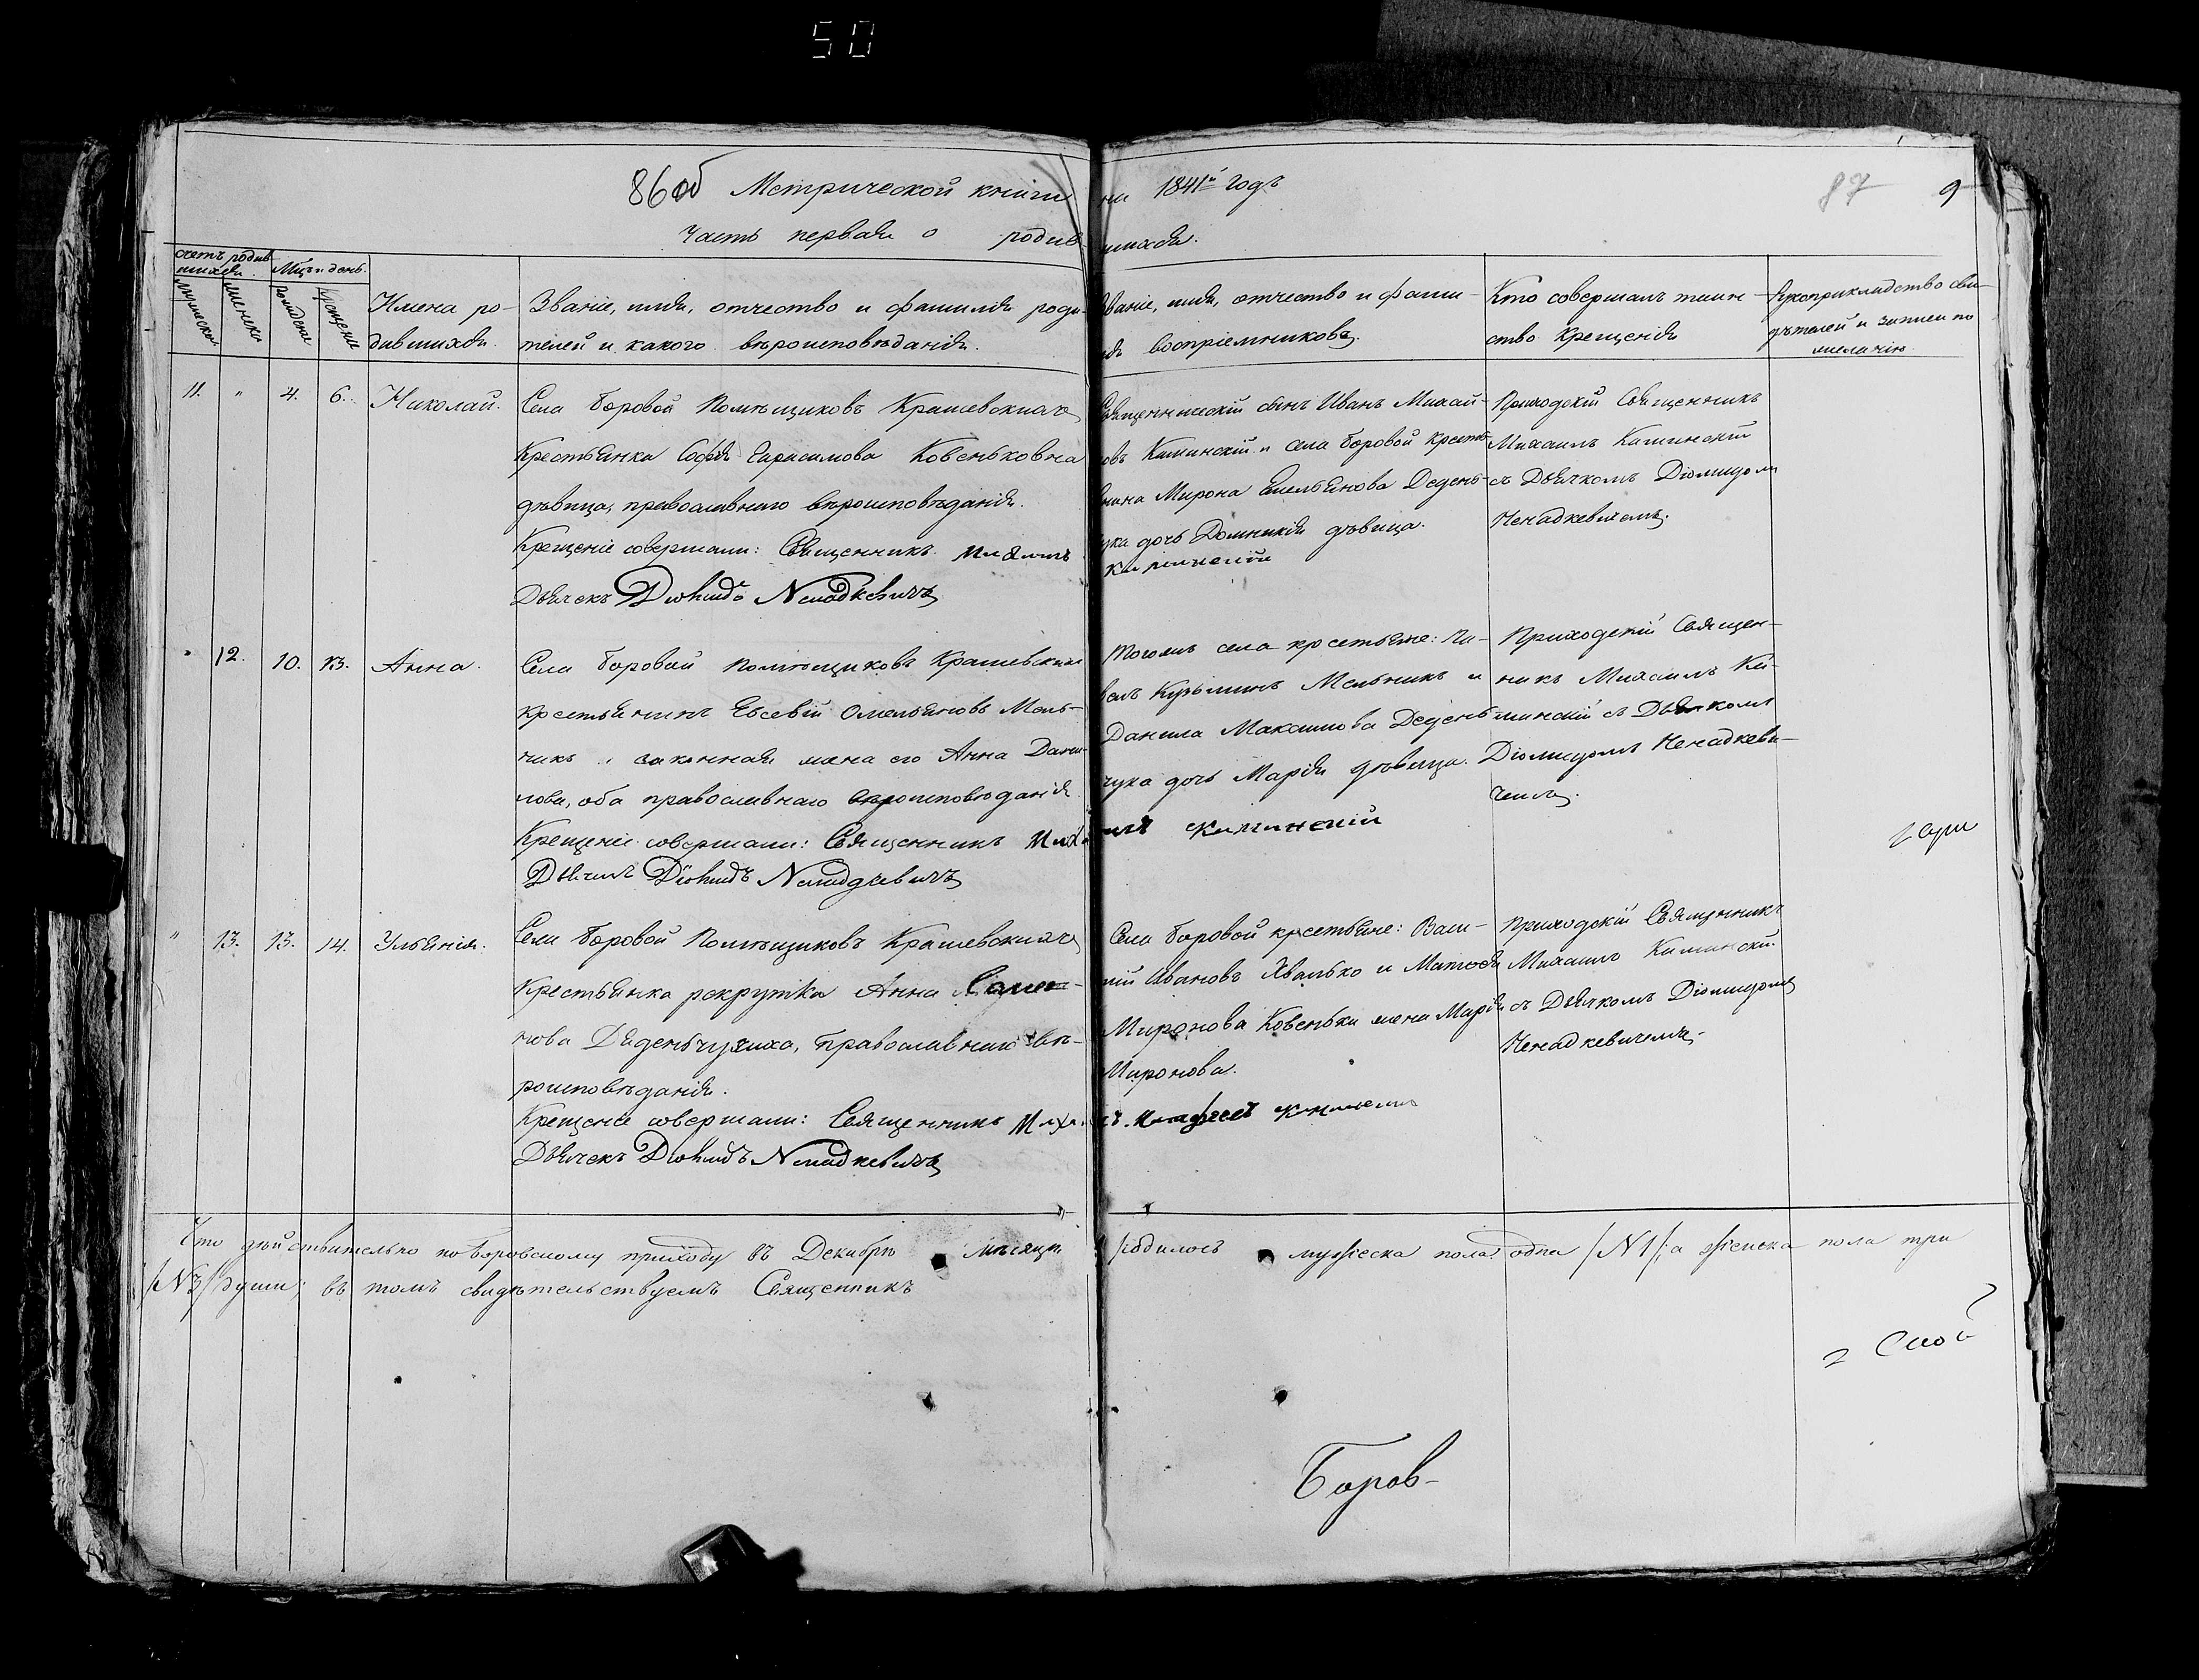 50
86об Метрической книги на 1841й годъ 87 9
Часть первая о родившихся.
Счетъ родив
шихся. Мцъ и день.
мужеска женска рожденія крещенія
Имена ро-
дившихся.
Званіе, имя, отчество и фамилія роди-
телей и какого вѣроисповѣданія.
Званіе, имя, отчество и фами-
лія воспріемниковъ.
Кто совершалъ таин-
ство Крещенія
Рукоприкладство сви-
дѣтелей и записи по
желанію
11. " 4. 6. Николай.
Села Боровой Помѣщиковъ Крашевскихъ
Крестьянка Софія Герасимова Ковеньковна
дѣвица, православнаго вѣроисповѣданія.
Крещеніе совершали: Священникъ Михаилъ
Каминскій
Дьячекъ Діомидъ Ненадкевичъ
Священническій сынъ Иванъ Михай-
овъ Каминскій и села Боровой крестья-
нина Мирона Емельянова Дедень-
чука дочь Домникія дѣвица.
Приходскій Священникъ
Михаилъ Каминскій
съ Дьячкомъ Діомидомъ
Ненадкевичемъ.
" 12. 10. 13. Анна.
Села Боровой Помѣщиковъ Крашевскихъ
крестьянинъ Евсевій Омельяновъ Мель-
никъ и законная жена его Анна Дани-
лова, оба православнаго вѣроисповѣданія
Крещеніе совершали: Священникъ Михаилъ Каминскій
Дьячекъ Діомидъ Ненадкевичъ
Тогожъ села крестьяне: Па-
велъ Кузьминъ Мельникъ и
Данила Максимова Дедень-
чука дочь Марія дѣвица.
Приходскій Священ-
никъ Михаилъ Ка-
минскій съ Дьячкомъ
Діомидомъ Ненадкеви-
чемъ.
" 13. 13. 14. Ульянія.
Села Боровой Помѣщиковъ Крашевскихъ
Крестьянка рекрутка Анна Семе-
нова Деденьчучиха, православнаго вѣ-
роисповѣданія.
Крещеніе совершали: Священникъ Каминскій
Дьячекъ Діомидъ Ненадкевичъ
Села Боровой крестьяне: Васи-
лій Ивановъ Хвалько и Матфея
Миронова Ковеньки жена Марія
Миронова.
Приходскій Священникъ
Михаилъ Каминскій
съ Дьячкомъ Діомидомъ
Ненадкевичемъ.
Что дѣйствительно по Боровскому приходу въ Декабрѣ мѣсяцѣ родилось мужеска пола одна /N1/; а женска пола три
/N3/ души; въ томъ свидѣтельствуемъ Священникъ
Боров-